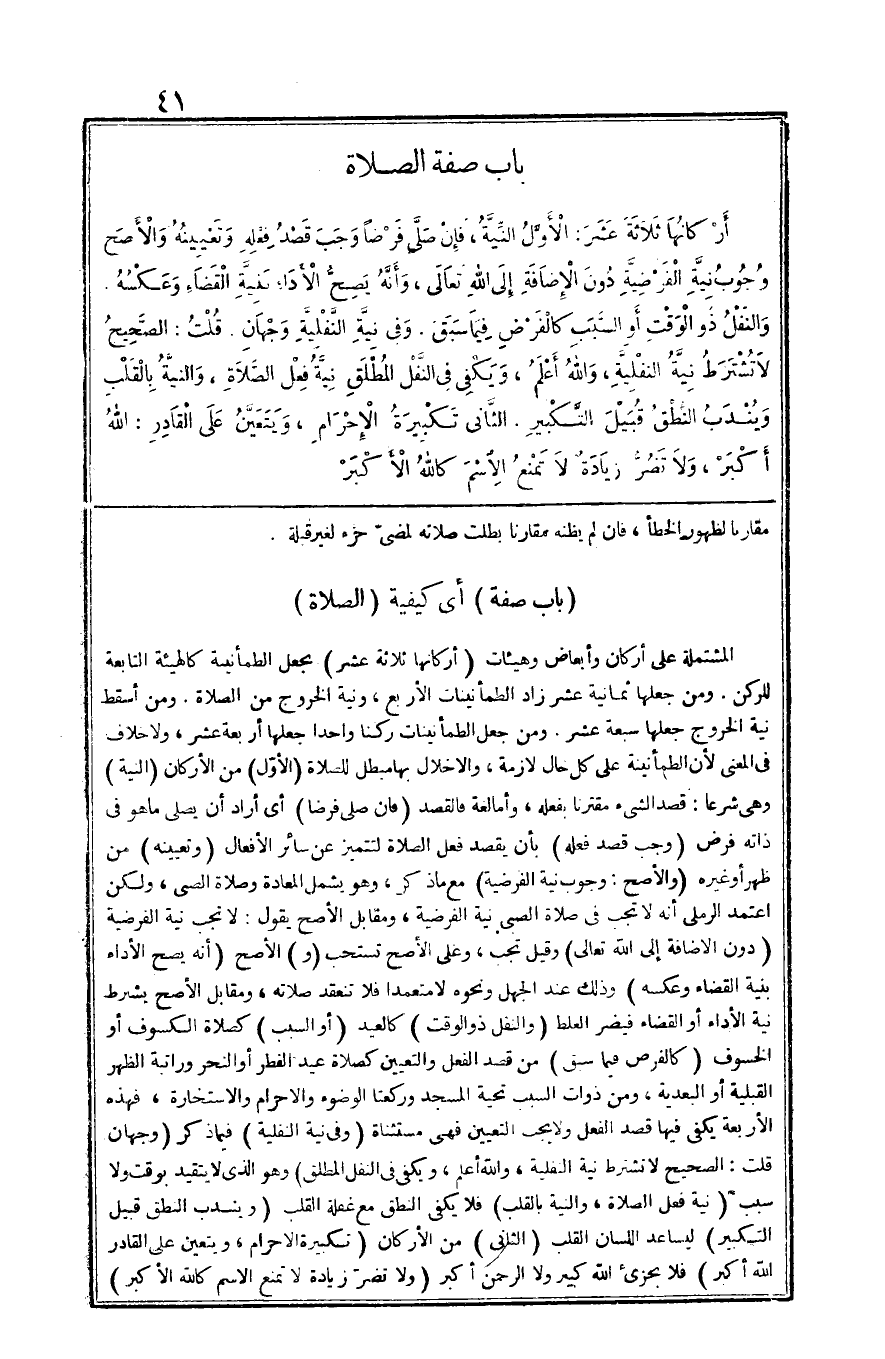 ٤١
باب صفة الصـلاة
أَرْكَانُهَا ثَلَاثَةَ عَشَرَ: الْأَوَّلُ النِّيَّةُ، فَإِنْ صَلَّى فَرْضاً وَجَبَ قَصْدُ فِعْلِهِ وَتَعْيِينُهُ وَالْأَصَح
وُجُوبُ نِيَّةِ الْفَرْضِيَّةِ دُونَ الْإِضَافَةِ إِلَى اللهِ تَعَالَى، وَأَنَّهُ يَصِحُّ الْأَدَاءُ بِنِيَّةِ الْقَضَاءِ وَعَكْسُهُ .
وَالنَّفْلُ ذُو الْوَقْتِ أَوِ السَّبَبِ كَالْفَرْضِ فِيمَا سَبَقَ . وَفِي نِيَّةِ النَّفْلِيَّةِ وَجْهَانِ . قُلْتُ : الصَّحِيحُ
لَا تُشْتَرَطُ نِيَّةُ النَّفْلِيَّةِ، وَاللهُ أَعْلَمُ ، وَيَكْفِي فِي النَّفْلِ الْمُطْلَقِ نِيَّةُ فِعْلِ الصَّلَاةِ ، وَالنِّيَّةُ بِالْقَلْبِ
وَيُنْدَبُ النُّطْقُ قُبَيْلَ التَّكْبِيرِ . الثَّانِي تَكْبِيرَةُ الْإِحْرَامِ ، وَيَتَعَيَّنُ عَلَى الْقَادِرِ : اللهُ
أَكْبَرْ ، وَلَا تَضُرُّ زِيَادَةٌ لَا تَمْنَعُ الِاسْمَ كَاللهُ الْأَكْبَرْ
مقارنا لظهور الخطأ ، فان لم يظنه مقارنا بطلت صلاته لمضىّ جزء لغير قبلة .
(باب صفة) أى كيفية (الصلاة)
المشتملة على أركان وأبعاض وهيئات (أركانها ثلاثة عشر) بجعل الطمأنينة كالهيئة التابعة
للركن . ومن جعلها ثمانية عشر زاد الطمأنينات الأربع ، ونية الخروج من الصلاة . ومن أسقط
نية الخروج جعلها سبعة عشر . ومن جعل الطمأنينات ركنا واحدا جعلها أربعة عشر ، ولاخلاف
فى المعنى لأن الطمأنينة على كل حال لازمة ، والاخلال بها مبطل للصلاة (الأوّل) من الأركان (النية)
وهى شرعا : قصد الشىء مقترنا بفعله ، وأما لغة فالقصد (فان صلى فرضا) أى أراد أن يصلى ماهو فى
ذاته فرض (وجب قصد فعله) بأن يقصد فعل الصلاة لتتميز عن سائر الأفعال (وتعيينه) من
ظهر أو غيره (والأصح : وجوب نية الفرضية) مع ماذكر ، وهو يشمل المعادة وصلاة الصبى ، ولكن
اعتمد الرملى أنه لا تجب فى صلاة الصبى نية الفرضية ، ومقابل الأصح يقول : لا تجب نية الفرضية
(دون الاضافة إلى الله تعالى) وقيل تجب ، وعلى الأصح تستحب (و) الأصح (أنه يصح الأداء
بنية القضاء وعكسه) وذلك عند الجهل ونحوه لامتعمدا فلا تنعقد صلاته ، ومقابل الأصح يشترط
نية الأداء أو القضاء فيضر الغلط (والنفل ذو الوقت) كالعيد (أو السبب) كصلاة الكسوف أو
الخسوف (كالفرض فيما سبق) من قصد الفعل والتعيين كصلاة عيد الفطر أو النحر وراتبة الظهر
القبلية أو البعدية ، ومن ذوات السبب تحية المسجد وركعتا الوضوء والاحرام والاستخارة ، فهذه
الأربعة يكفى فيها قصد الفعل ولايجب التعيين فهى مستثناة (وفى نية النفلية) فيماذكر (وجهان
قلت : الصحيح لا تشترط نية النفلية ، والله أعلم ، ويكفى فى النفل المطلق) وهو الذى لا يتقيد بوقت ولا
سبب (نية فعل الصلاة ، والنية بالقلب) فلا يكفى النطق مع غفلة القلب (ويندب النطق قبيل
التكبير) ليساعد اللسان القلب (الثانى) من الأركان (تكبيرة الاحرام ، ويتعين على القادر
الله أكبر) فلا يجزئ الله كبير ولا الرحمن أكبر (ولا تضرّ زيادة لا تمنع الاسم كالله الأكبر)